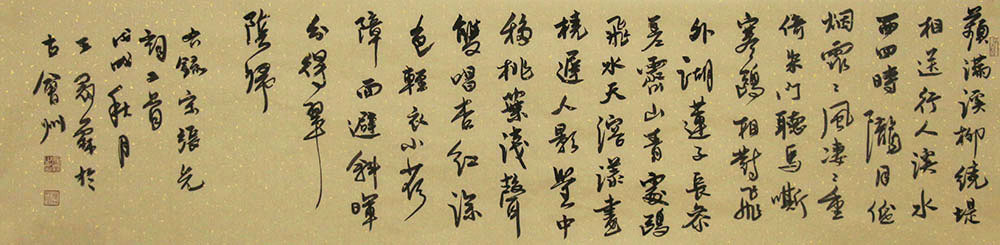 蘋滿溪柳繞堤
相送行人溪水
西回時隴月低
烟霏〻風凄〻重
倚朱門聽馬嘶
寒鷗相對飛
外湖蓮子長參
差霽山青處鷗
飛水天溶漾畫
橈遲人影鑒中
移桃葉淺聲
雙唱杏紅深
色輕衣小荷
障面避斜暉
分得翠
陰歸
右錄宋張先
詞二首
戊戌秋月
王 於
古會州